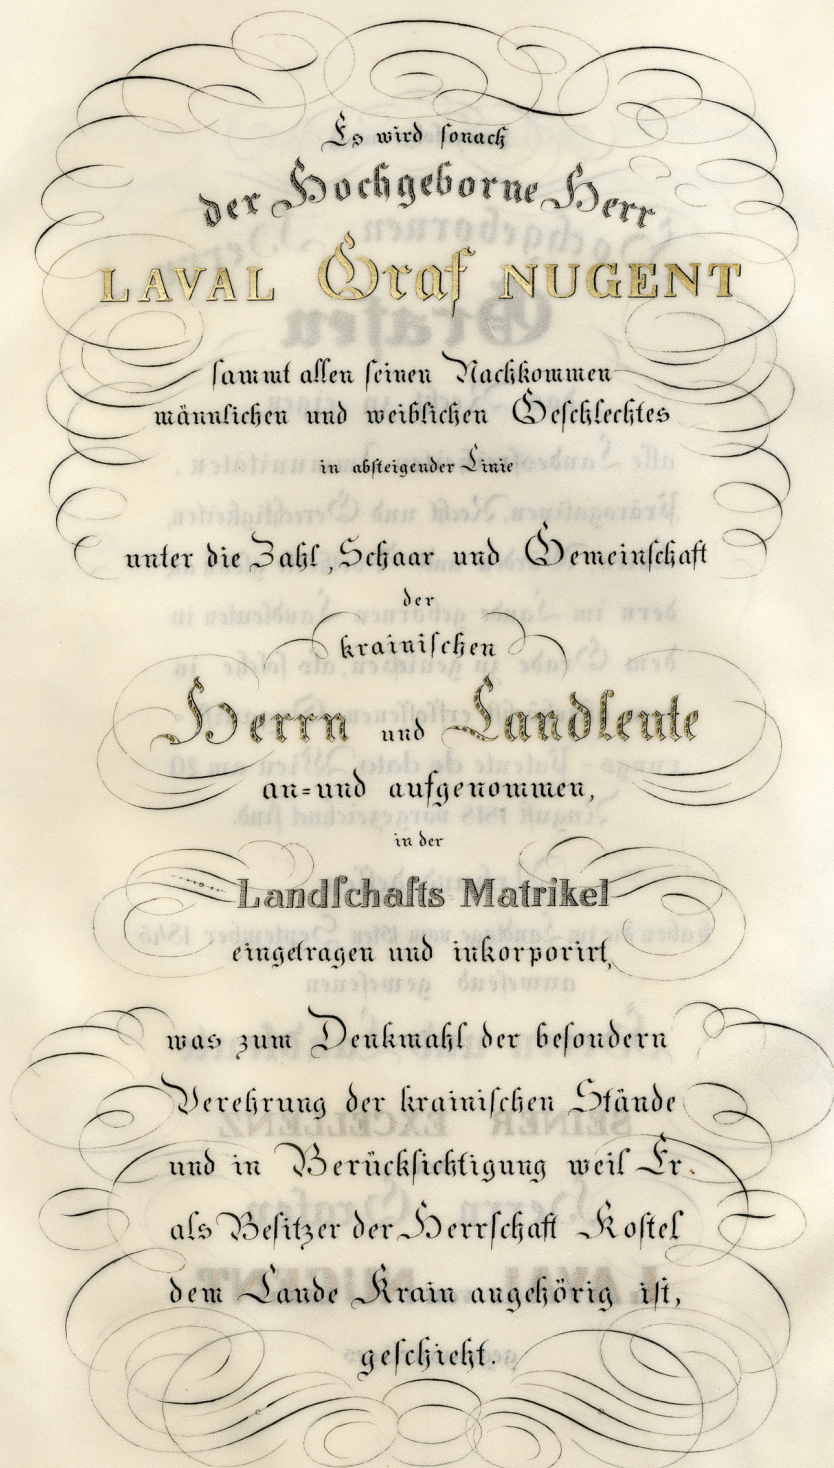 Es wird sonach
der Hochgeborne Herr
LAVAL Graf NUGENT
sammt allen seinen Nachkommen
männlichen und weiblichen Geschlechtes
in absteigender Linie
unter die Zahl, Schaar und Gemeinschaft
der
krainischen
Herrn und Landleute
an=und aufgenommen,
in der
Landschafts Matrikel
eingetragen und inkorporirt,
was zum Denkmahl der besondern
Verehrung der krainischen Stände
und in Berücksichtigung weil Er.
als Besitzer der Herrschaft Kostel
dem Lande Krain angehörig ist,
geschieht.